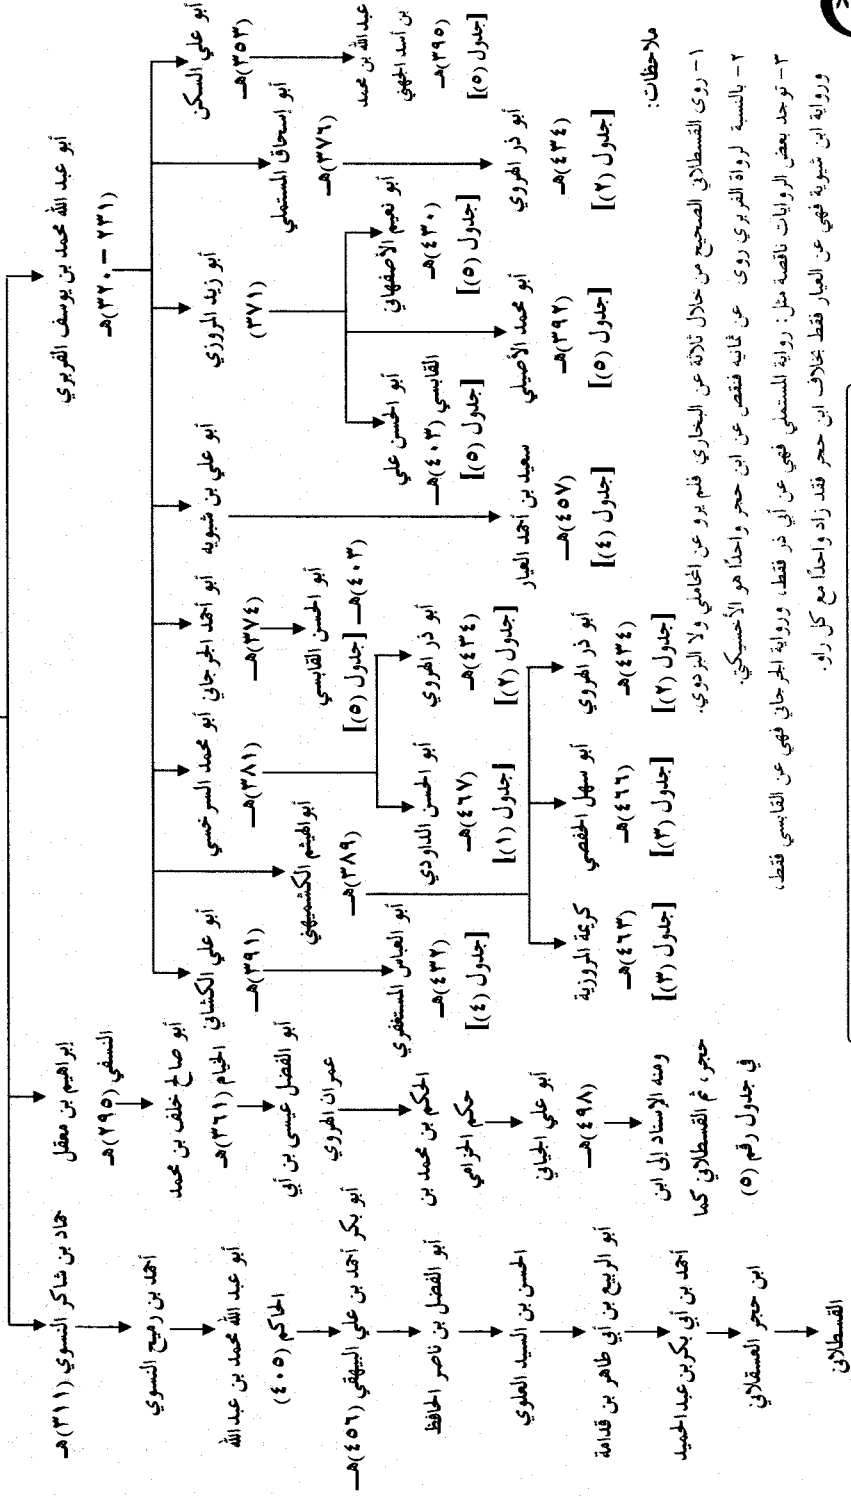 أبو عبد الله محمد بن يوسف الفربري
(٢٣١ – ٣٢٠)هـ
إبراهيم بن معقل
النسفي (٢٩٥)هـ
حماد بن شاكر النسوي (٣١١)هـ
أبو علي السكن
(٣٥٣)هـ
عبد الله بن محمد
بن أسد الجهني
(٣٩٥)هـ
[جدول (٥)]
أبو إسحاق المستملي
(٣٧٦)هـ
أبو ذر الهروي
(٤٣٤)هـ
[جدول (٢)]
أبو زيد المروزي
(٣٧١)
أبو نعيم الأصفهاني
(٤٣٠)هـ
[جدول (٥)]
أبو محمد الأصيلي
(٣٩٢)هـ
[جدول (٥)]
أبو الحسن علي
القابسي (٤٠٣)هـ
[جدول (٥)]
أبو علي بن شبويه
سعيد بن أحمد العيار
(٤٥٧)هـ
[جدول (٤)]
أبو أحمد الجرجاني
(٣٧٤)هـ
أبو الحسن القابسي
(٤٠٣)هـ [جدول (٥)]
أبو محمد السرخسي
(٣٨١)هـ
أبو ذر الهروي
(٤٣٤)هـ
[جدول (٢)]
أبو الحسن الداودي
(٤٦٧)هـ
[جدول (١)]
أبو الهيثم الكشميهني
(٣٨٩)هـ
أبو ذر الهروي
(٤٣٤)هـ
[جدول (٢)]
أبو سهل الحفصي
(٤٦٦)هـ
[جدول (٣)]
كريمة المروزية
(٤٦٣)هـ
[جدول (٣)]
أبو علي الكشاني
(٣٩١)هـ
أبو العباس المستغفري
(٤٣٢)هـ
[جدول (٤)]
أبو صالح خلف بن محمد
الخيام (٣٦١)هـ
أبو الفضل عيسى بن أبي
عمران الهروي
الحكم بن محمد بن
حكم الخزامي
أبو علي الجياني
(٤٩٨)هـ
ومنه الإسناد إلى ابن
حجر، ثم القسطلاني كما
في جدول رقم (٥)
أحمد بن رميح النسوي
أبو عبد الله محمد بن عبد الله
الحاكم (٤٠٥)
أبو بكر أحمد بن علي البيهقي (٤٥٦)هـ
أبو الفضل بن ناصر الحافظ
الحسن بن السيد العلوي
أبو الربيع بن أبي طاهر بن قدامة
أحمد بن أبي بكر بن عبد الحميد
ابن حجر العسقلاني
القسطلاني
ملاحظات:
١– روى القسطلاني الصحيح من خلال ثلاثة عن البخاري فلم يرو عن المحاملي ولا البزدوي.
٢– بالنسبة لرواة الفربري روى عن ثمانية فنقص عن ابن حجر واحدًا هو الأخسيكتي.
٣– توجد بعض الروايات ناقصة مثل: رواية المستملي فهي عن أبي ذر فقط، ورواية الجرجاني فهي عن القابسي فقط،
ورواية ابن شبوية فهي عن العيار فقط بخلاف ابن حجر فقد زاد واحدًا مع كل راو.